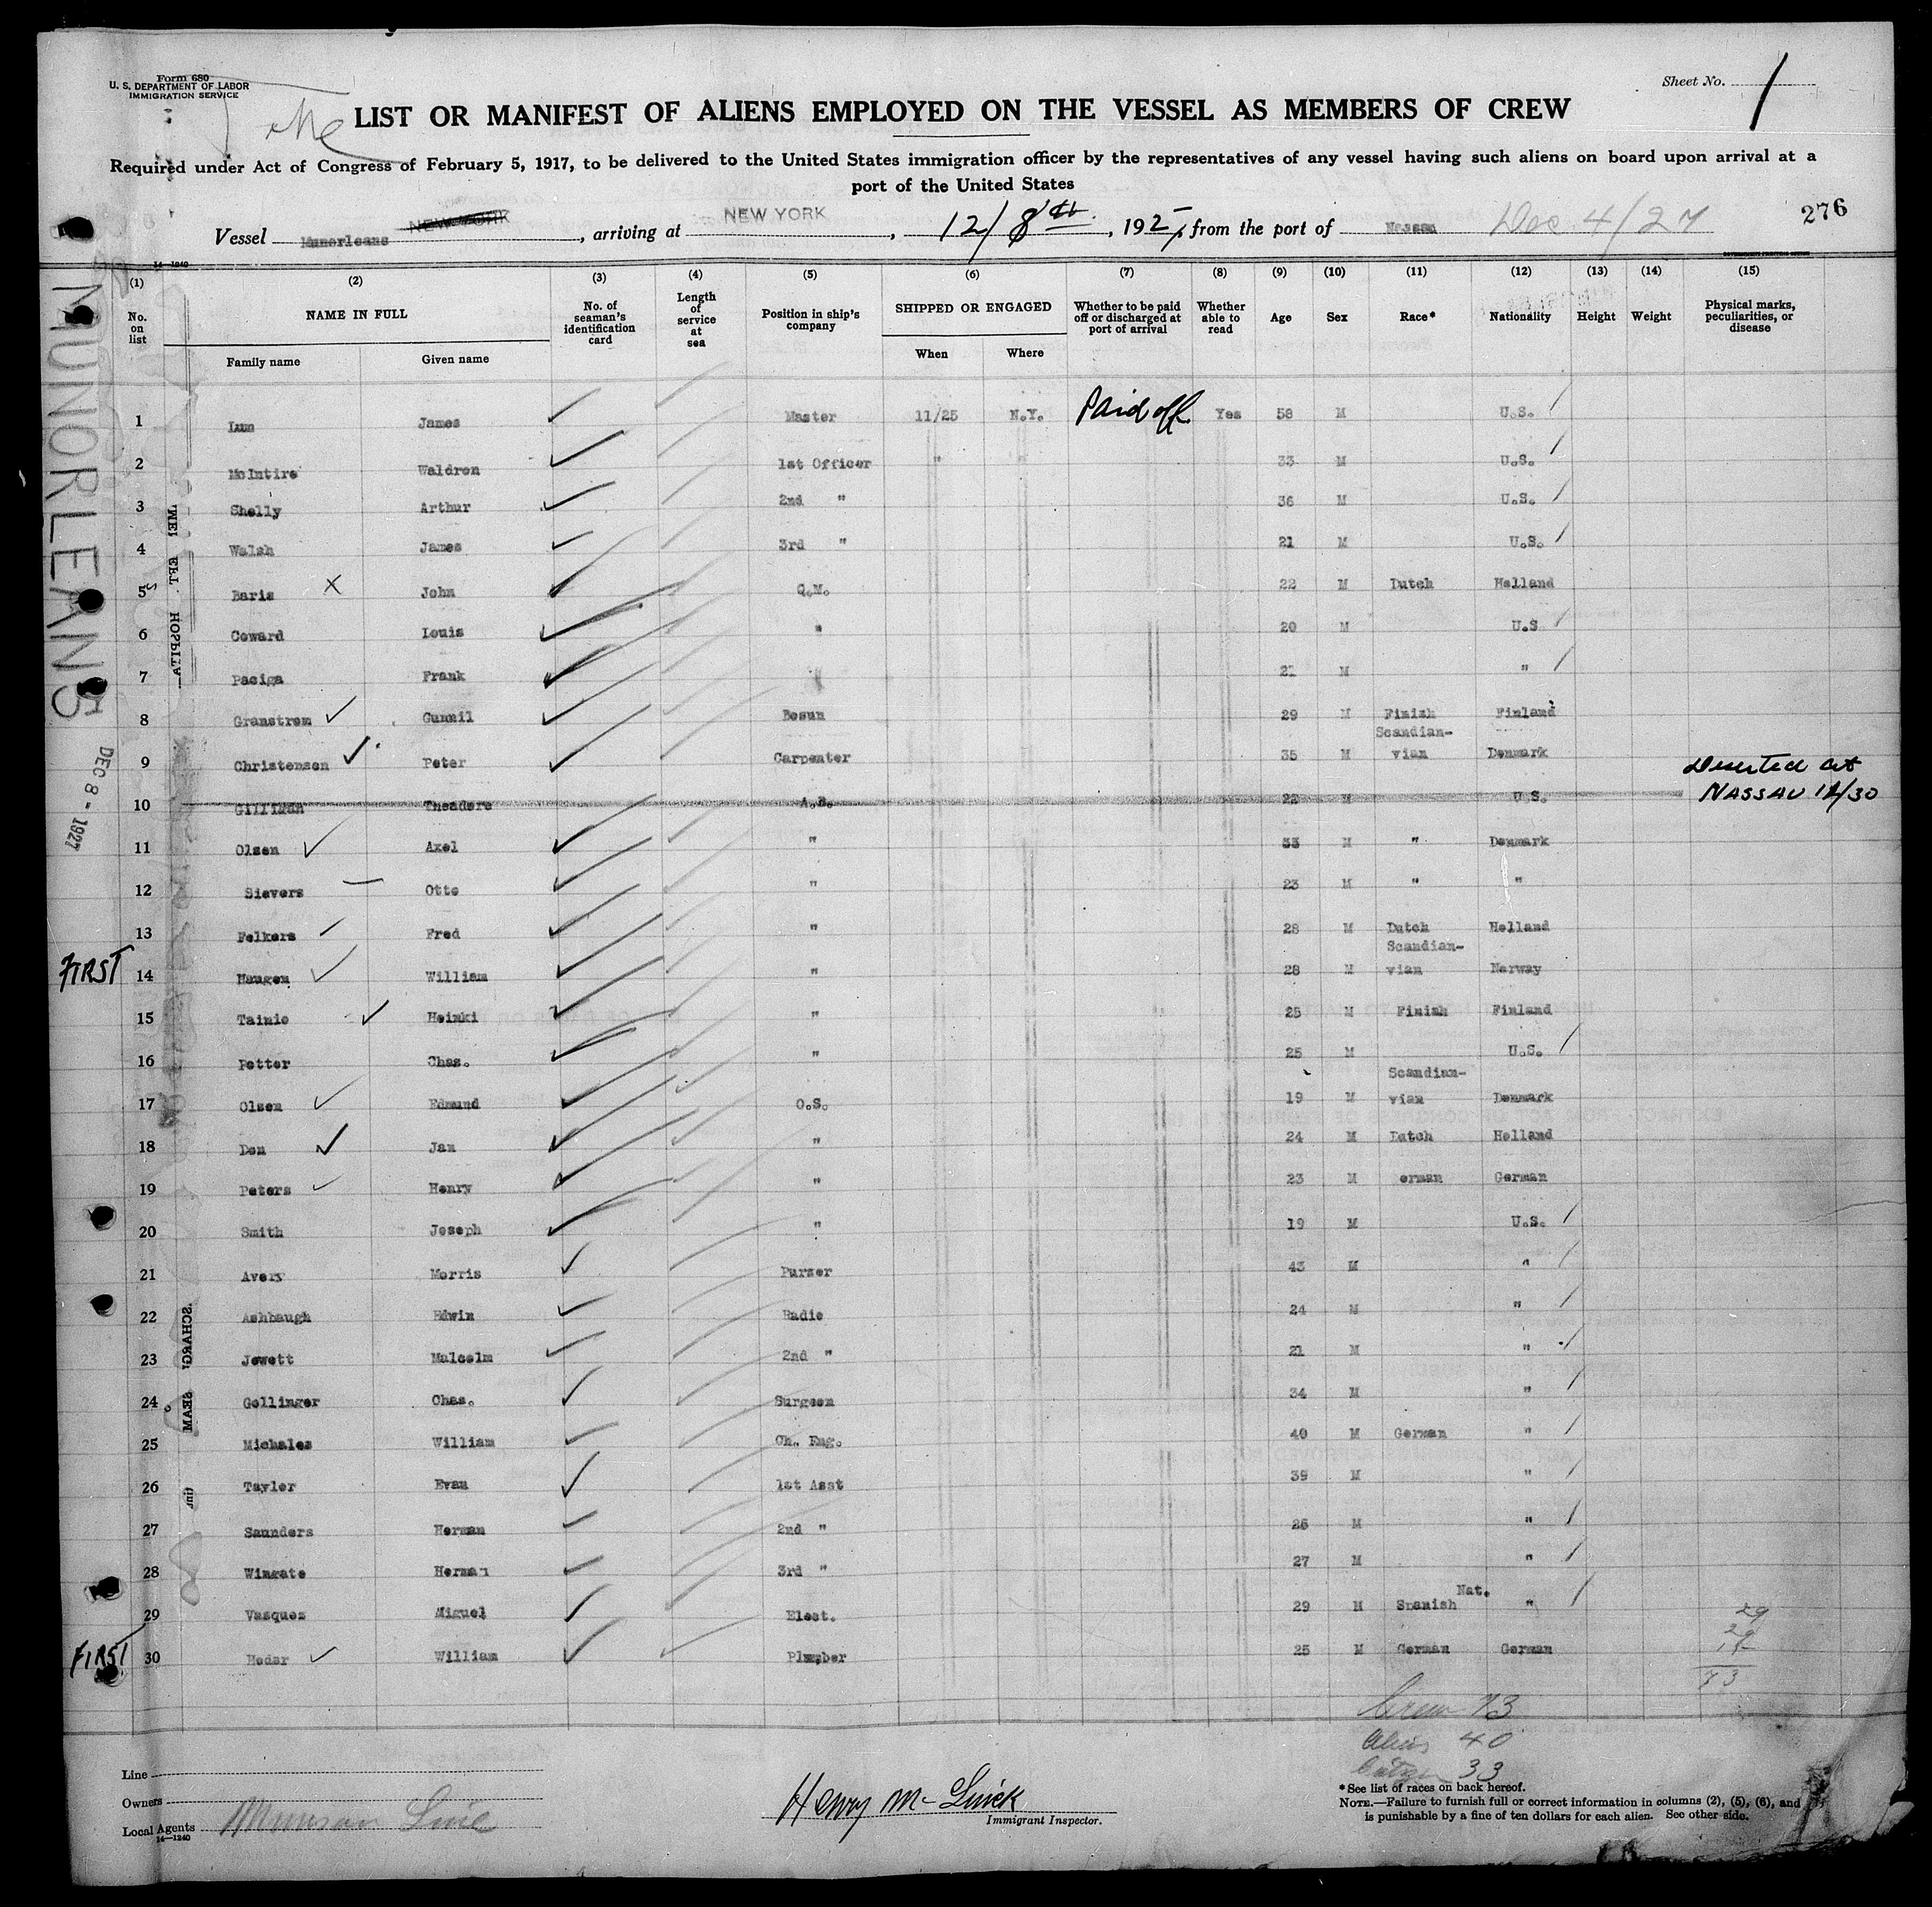 Form 680
U. S. DEPARTMENT OF LABOR
IMMIGRATION SERVICE
Sheet No. 1
LIST OR MANIFEST OF ALIENS EMPLOYED ON THE VESSEL AS MEMBERS OF CREW
Required under Act of Congress of February 5, 1917, to be delivered to the United States immigration officer by the representatives of any vessel having such aliens on board upon arrival at a
port of the United States
Vessel Munorleans NEW YORK, arriving at NEW YORK, 12/8th, 1927, from the port of Nassau Dec 4/27 276
14—1240
(1) (2) (3) (4) (5) (6) (7) (8) (9) (10) (11) (12) (13) (14) (15)
No. on list NAME IN FULL No. of seaman's identification card Length of service at sea Position in ship's company SHIPPED OR ENGAGED Whether to be paid off or discharged at port of arrival Whether able to read Age Sex Race* Nationality Height Weight Physical marks, peculiarities, or disease
Family name Given name When Where
1 Lum James Master 11/25 N.Y. Paid off Yes 58 M U.S.
2 McIntire Waldron 1st Officer " " 33 M U.S.
3 Shelly Arthur 2nd " 36 M U.S.
4 Walsh James 3rd " 21 M U.S.
5 Baris X John Q.M. 22 M Dutch Holland
6 Coward Louis " 20 M U.S
7 Paciga Frank " 21 M "
8 Granstrom Gunnil Bosun 29 M Finish Finland
9 Christensen Peter Carpenter 35 M Scandian-vian Denmark
10 Gilliman Theodore A.B. 22 M U.S. Deserted at NASSAU 11/30
11 Olsen Axel " 33 M " Denmark
12 Sievers Otto " 23 M " "
13 Folkers Fred " 28 M Dutch Holland
FIRST 14 Haugen William " 28 M Scandian-vian Norway
15 Tainio Heinki " 25 M Finish Finland
16 Potter Chas. " 25 M U.S.
17 Olsen Edmund O.S. 19 M Scandian-vian Denmark
18 Don Jan " 24 M Dutch Holland
19 Peters Henry " 23 M erman German
20 Smith Joseph " 19 M U.S.
21 Avery Morris Purser 43 M "
22 Ashbaugh Edwin Radio 24 M "
23 Jewett Malcolm 2nd " 21 M "
24 Gollinger Chas. Surgeon 34 M "
25 Michales William Ch. Eng. 40 M German "
26 Taylor Evan 1st Asst 39 M "
27 Saunders Herman 2nd " 26 M "
28 Wingate Herman 3rd " 27 M "
29 Vasquez Miguel Elect. 29 M Spanish Nat. "
FIRST 30 Hoder William Plumber 25 M German German
29
29
15
73
Crew 73
Aliens 40
Citizen 33
MUNORLEANS
DEC 8 - 1927
Line
Owners
Local Agents Munson Line
14—1240
Immigrant Inspector.
*See list of races on back hereof.
NOTE.—Failure to furnish full or correct information in columns (2), (5), (6), and
is punishable by a fine of ten dollars for each alien. See other side.